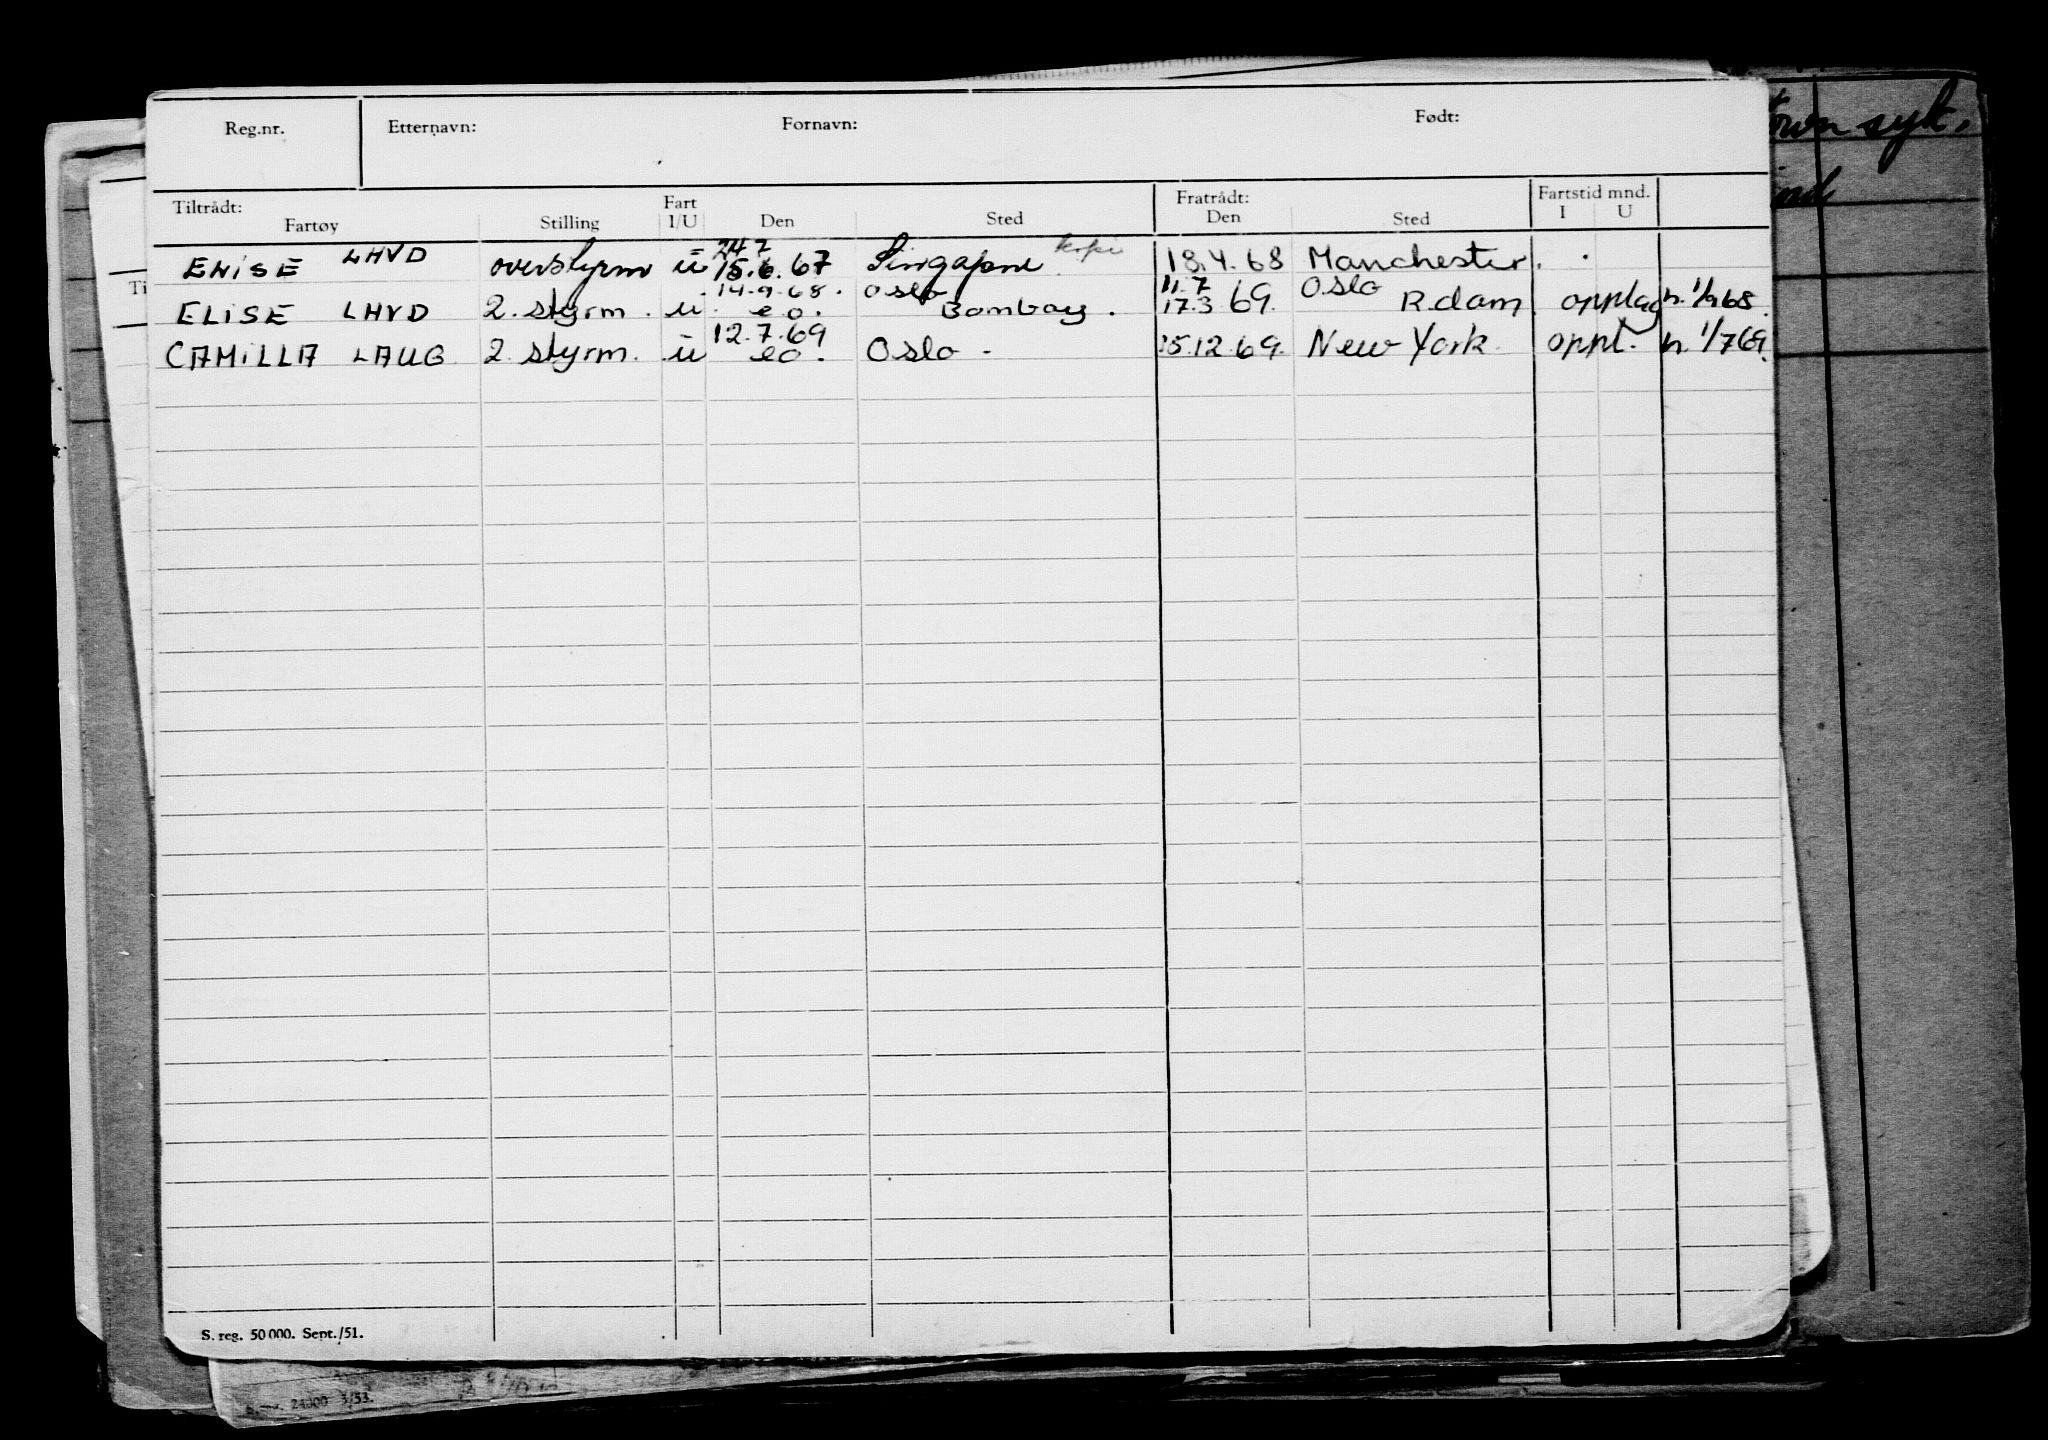 Reg.nr. Etternavn: Fornavn: Født:
Tiltrådt: Fart Fratrådt: Fartstid mnd.
Fartøy Stilling I/U Den Sted Den Sted I U
24.7
ELISE LHVD overstyrm u 15.6.67 Singapore kopi 18.4.68 Manchester.
14.9.68. Oslo 11.7 Oslo
ELISE LHVD 2. styrm. u. eo. Bombay. 17.3 69. R.dam opplag h. 1/9 68.
12.7.69
CAMILLA LAUG 2. styrm. u eo. Oslo. 25.12.69. New York. oppl. h. 1/7 69.
S. reg. 50 000. Sept./51.
24000 3/53.
syk.